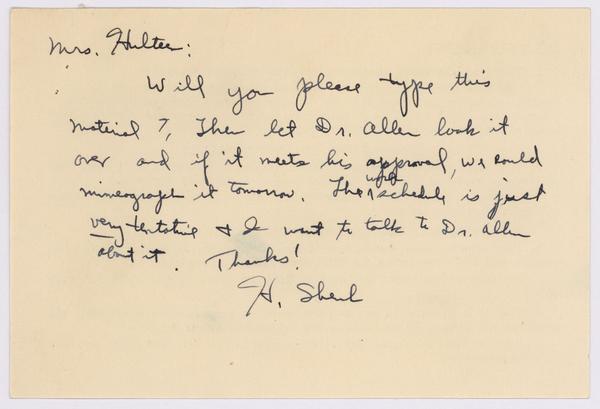 Mrs. Hulten:
Will you please type this
material ?, Then let Dr. Allen look it
over and if it meets his approval, we could
mimeograph it tomorrow. The schedule is just
very tentative & I want to talk to Dr. Allen
about it. Thanks!
H.